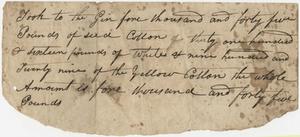 Took to the Gin fore thousand and forty five
Pounds of seed Cotton thirty one hundred
& sixteen pounds of White & nine hundred and
Twenty nine of the Yellow Cotton the whole
Amount is fore thousand and forty five
Pounds